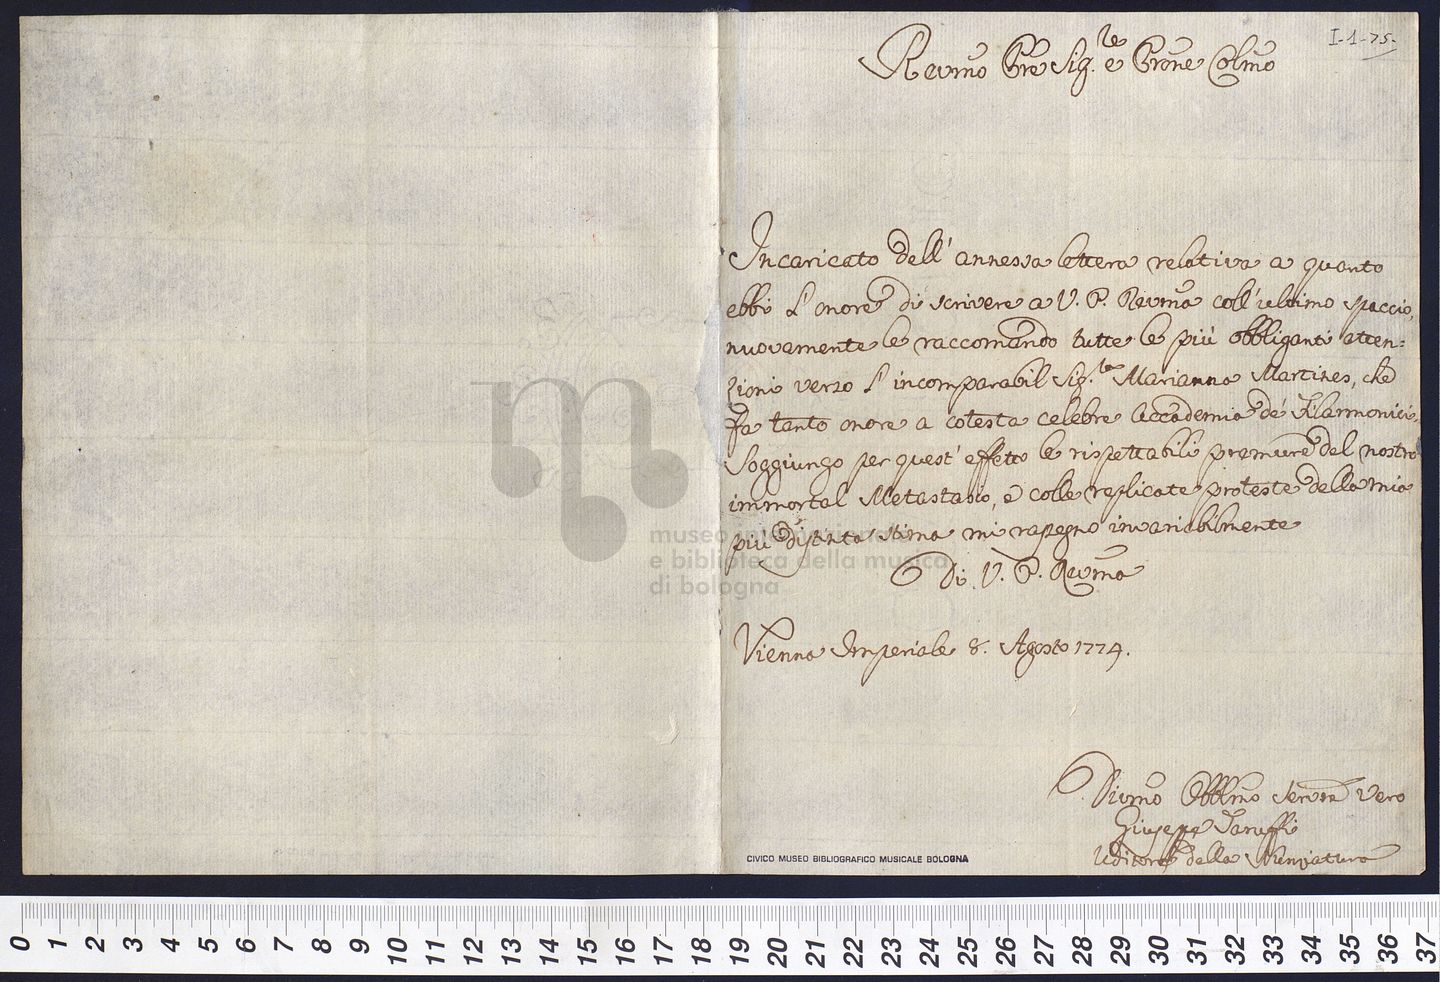 I-1-75.
Revmo Pre Sig.re e Prone Colmo
Incaricato dell' annessa lettera relativa a quanto
ebbi l' onore di scrivere a V. P. Revma coll' ultimo spaccio,
nuovamente le raccomando tutte le più obbliganti atten=
zioni verso l' incomparabil Sig.ra Marianna Martines, che
fa tanto onore a cotesta celebre Accademia de' Filarmonici.
Soggiungo per quest' effetto le rispettabili premure del nostro
immortal Metastasio, e colle replicate proteste della mia
più distinta stima mi rassegno invariabilmente
Di V. P. Revma
Vienna Imperiale 8. Agosto 1774.
Divmo Obblmo Servre vero
Giuseppe Taruffi
Uditore della Nunziatura
museo internazionale
e biblioteca della musica
di bologna
CIVICO MUSEO BIBLIOGRAFICO MUSICALE BOLOGNA
0 1 2 3 4 5 6 7 8 9 10 11 12 13 14 15 16 17 18 19 20 21 22 23 24 25 26 27 28 29 30 31 32 33 34 35 36 37